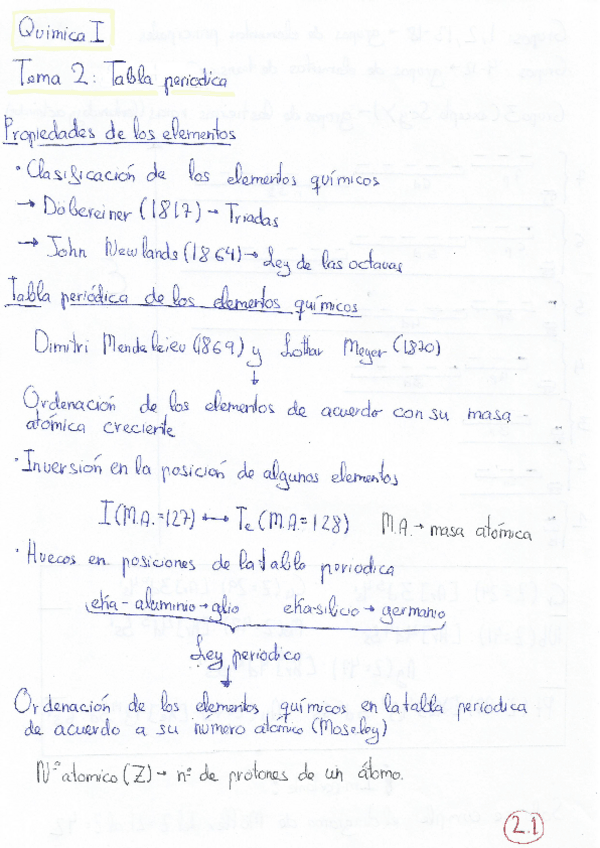 Quimica I
Tema 2: Tabla periodica
Propiedades de los elementos
· Clasificación de los elementos químicos
→ Döbereiner (1817) → Triadas
→ John Newlands (1864) → Ley de las octavas
Tabla periódica de los elementos químicos
Dimitri Mendeleiev (1869) y Lothar Meyer (1870)
↓
Ordenación de los elementos de acuerdo con su masa
atómica creciente
· Inversión en la posición de algunos elementos
I (M.A.=127) ↔ Te (M.A.=128) M.A. → masa atómica
· Huecos en posiciones de la tabla periodica
eka-aluminio → glio eka-silicio → germanio
Ley periodica
↓
Ordenación de los elementos químicos en la tabla periodica
de acuerdo a su numero atómico (Moseley)
Nº atomico (Z) → nº de protones de un átomo.
2.1